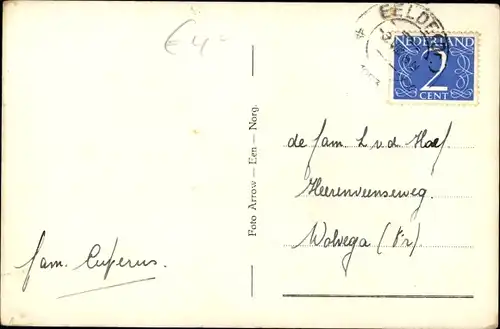 € 4-
EELDE
NEDERLAND
2
CENT
Foto Arrow — Een — Norg.
de fam. L. v. d. Hoef.
Heerenveenseweg.
Wolvega (Fr.)
fam. Cuperus.